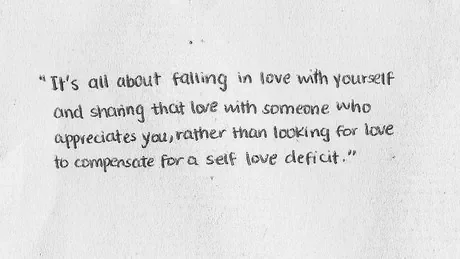 "It's all about falling in love with yourself
and sharing that love with someone who
appreciates you, rather than looking for love
to compensate for a self love deficit."